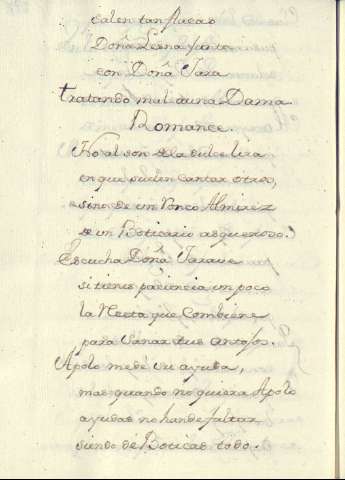 salen tan flacas
Doña Lesna junta
con Doña Vara
tratando mal a una Dama
Romance.
No al son de la dulce lira
en que suelen cantar otros,
sino de un ronco Almirez
de un Boticario asqueroso.
Escucha Doña Jarave
si tienes paciencia un poco
la Receta que combiene
para sanar tus antojos.
Apolo me dé su ayuda,
mas quando no quiera Apolo
ayudas no han de faltar
siendo de Boticas todo.